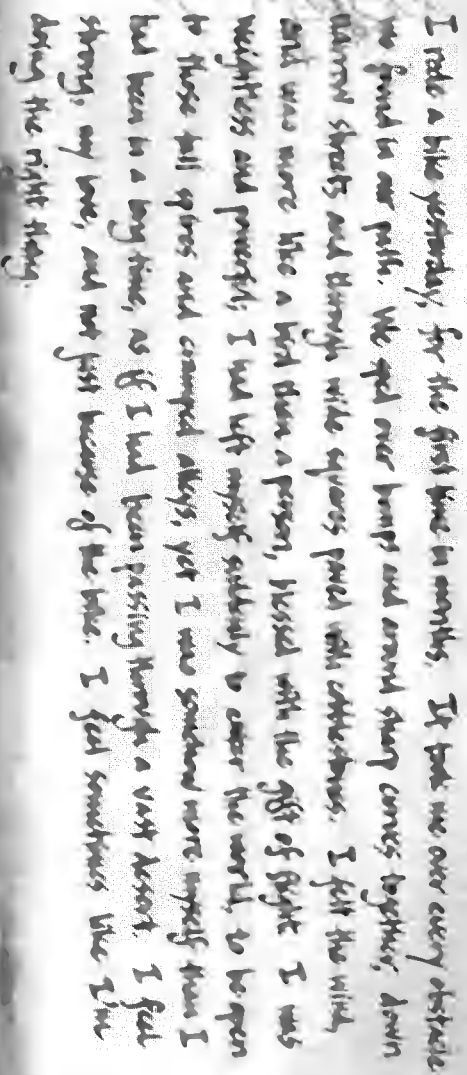 I rode a bike yesterday, for the first time in months. It took me over every obstacle
we found in our path. We sped over bumps and around sharp curves together, down
narrow streets and through wide squares paved with cobblestones. I felt the wind
and was more like a bird than a person, blessed with the gift of flight. I was
weightless and powerful; I had left myself suddenly to enter the world, to be open
to those tall spires and cramped alleys, yet I was somehow more myself than I
had been in a long time, as if I had been passing through a vast desert. I feel
strong, my love, and not just because of the bike. I feel sometimes like I'm
doing the right thing.